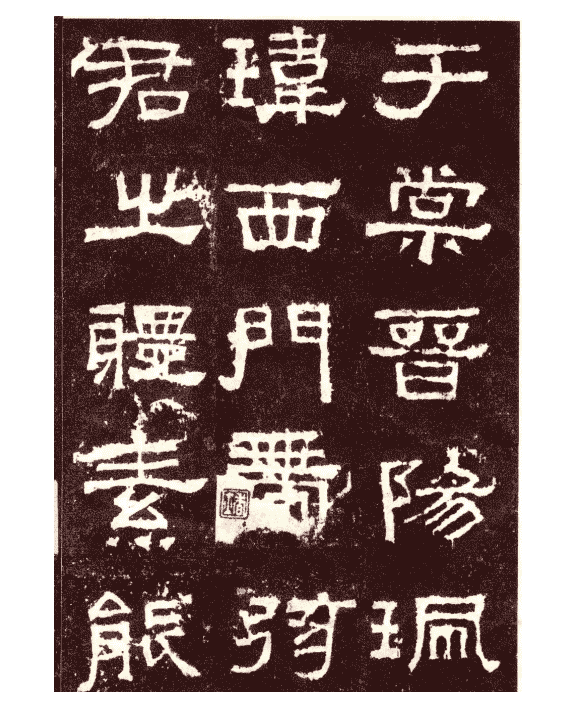 于棠晉陽珮
瑋西門帶弦
君之體素能